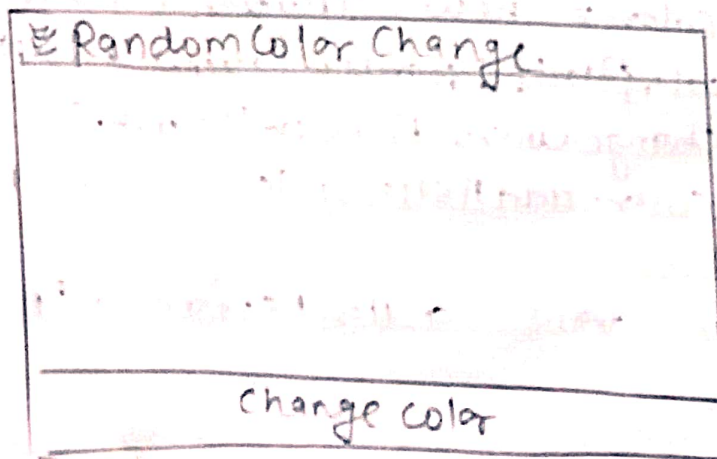 Random Color Change
Change color